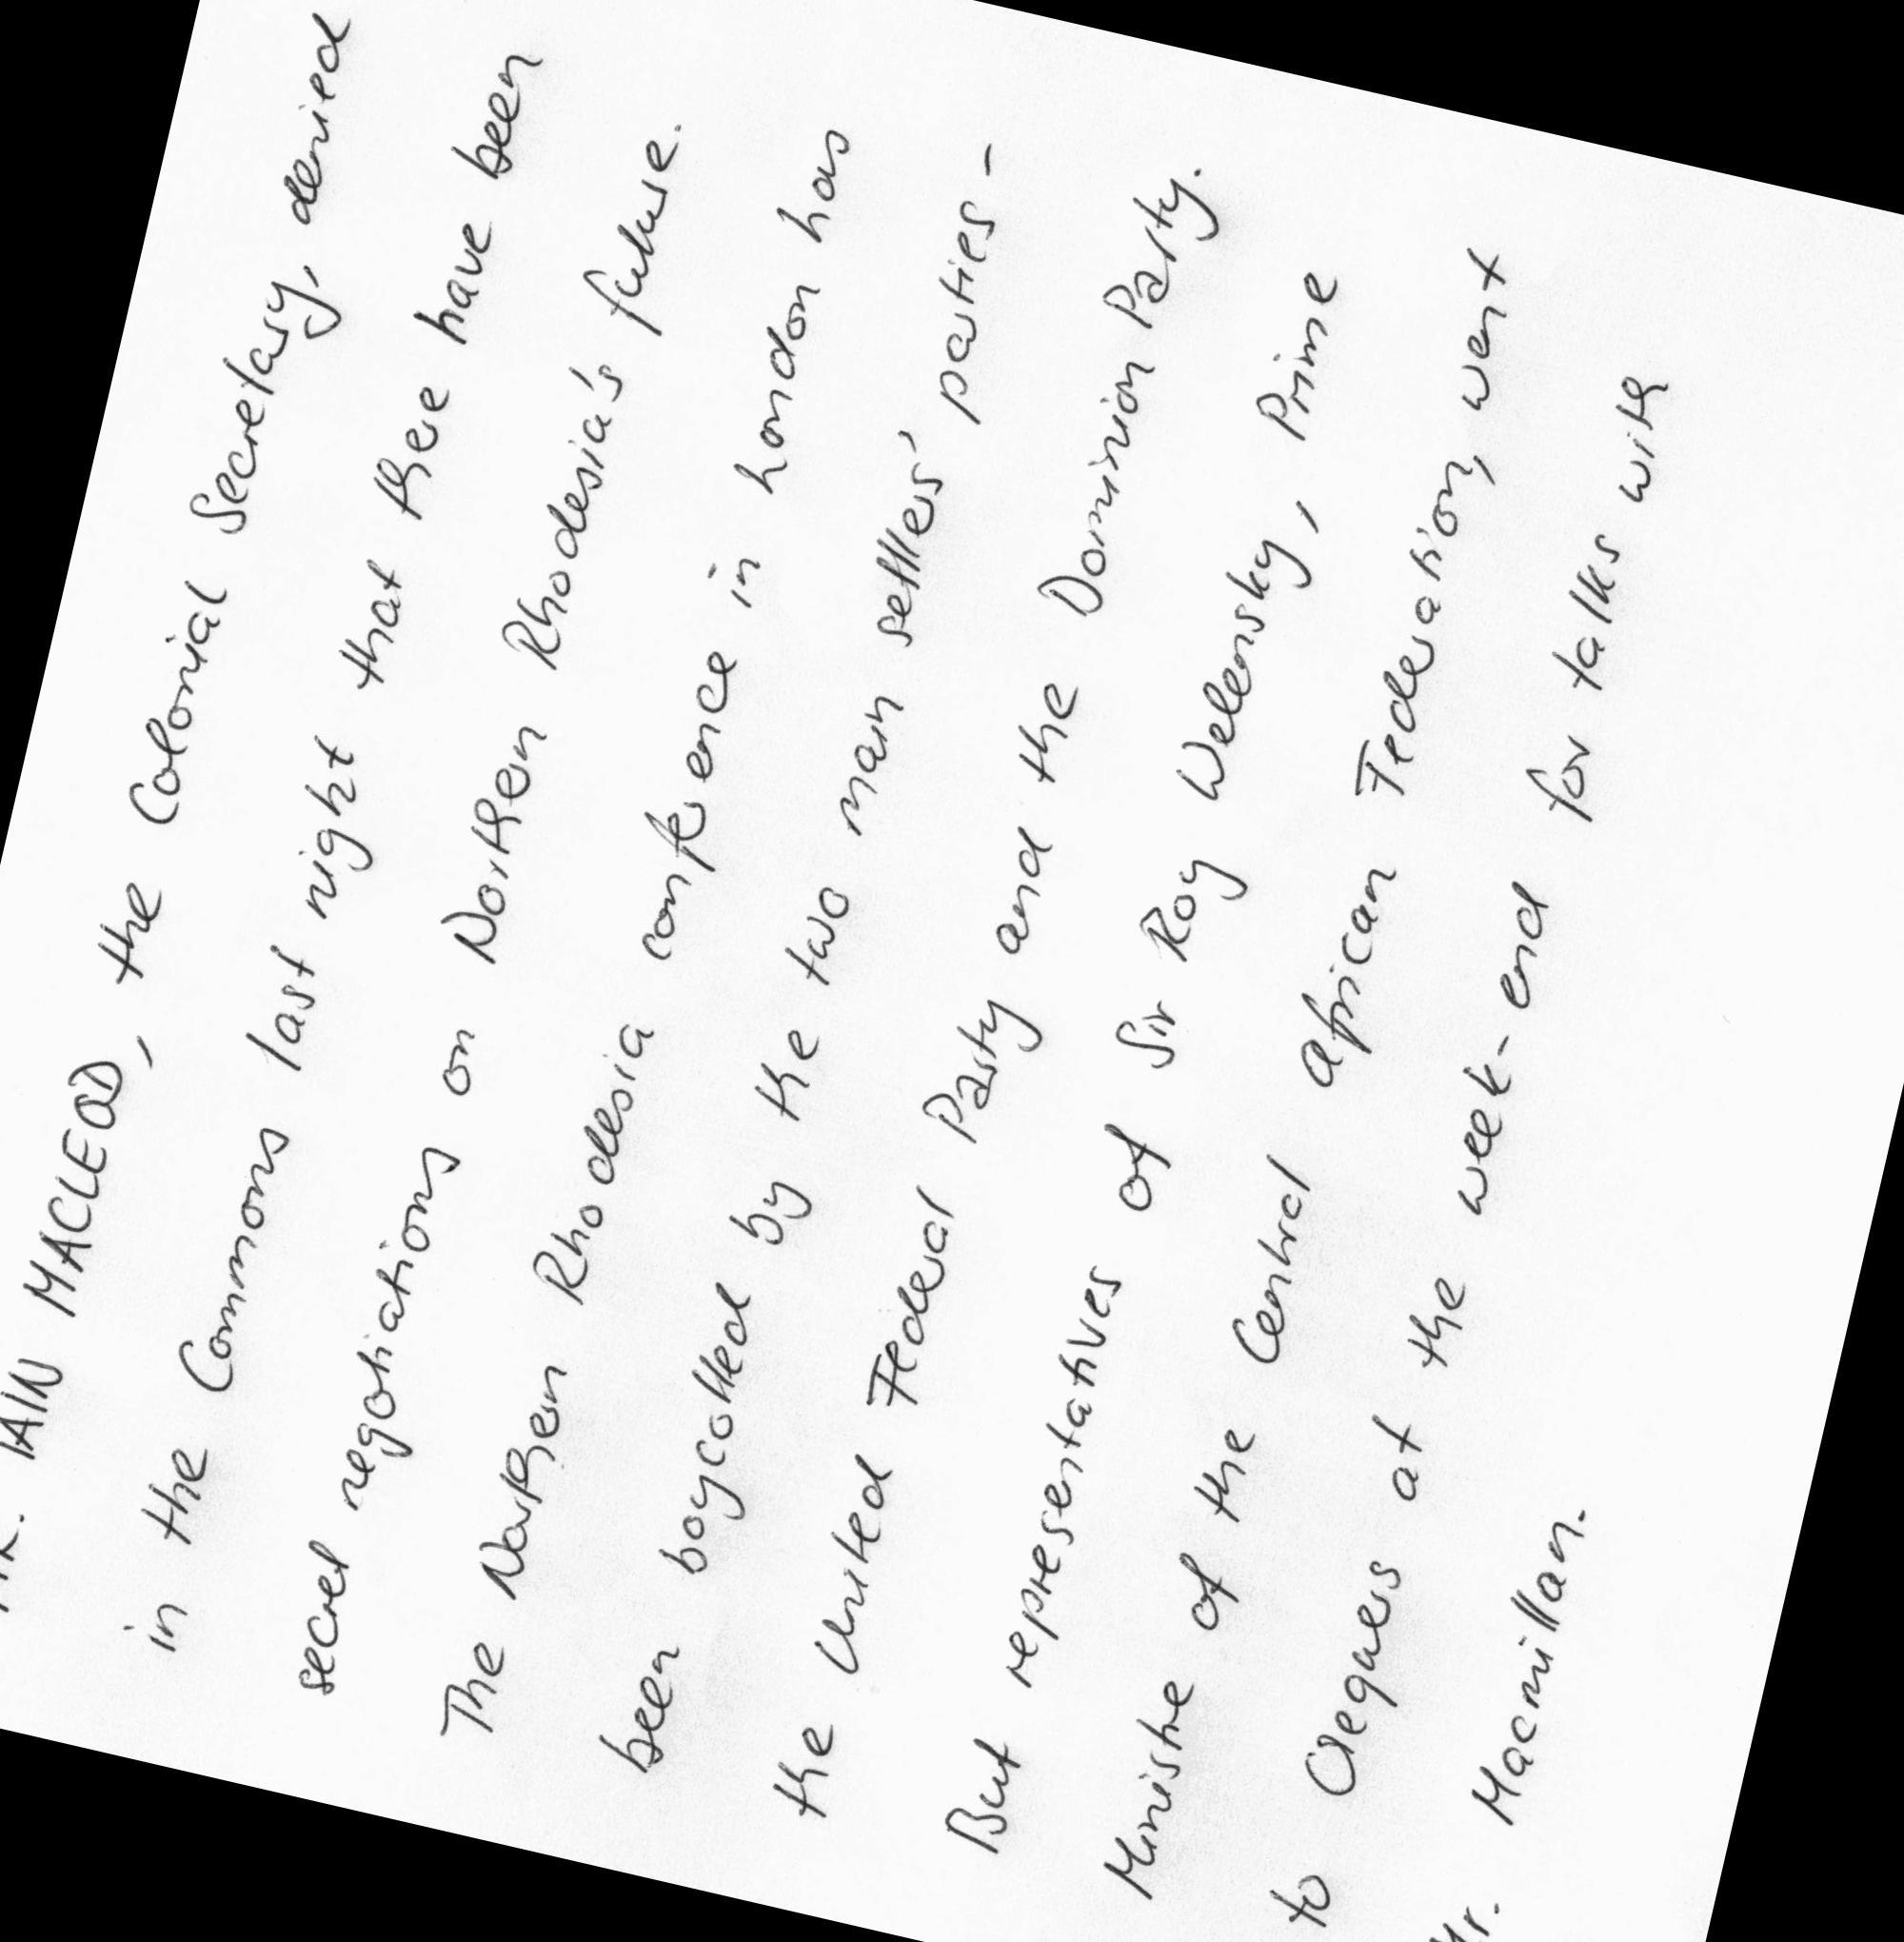 MR. IAIN MACLEOD, the Colonial Secretary, denied
in the Commons last night that there have been
secret negotiations on Northern Rhodesia's future.
The Northern Rhodesia conference in London has
been boycotted by the two main settlers' parties -
the United Federal Party and the Dominion Party.
But representatives of Sir Roy Welensky, Prime
Ministre of the Central african Federation, went
to Cheques at the week-end for talks with
Mr. Macmillan.